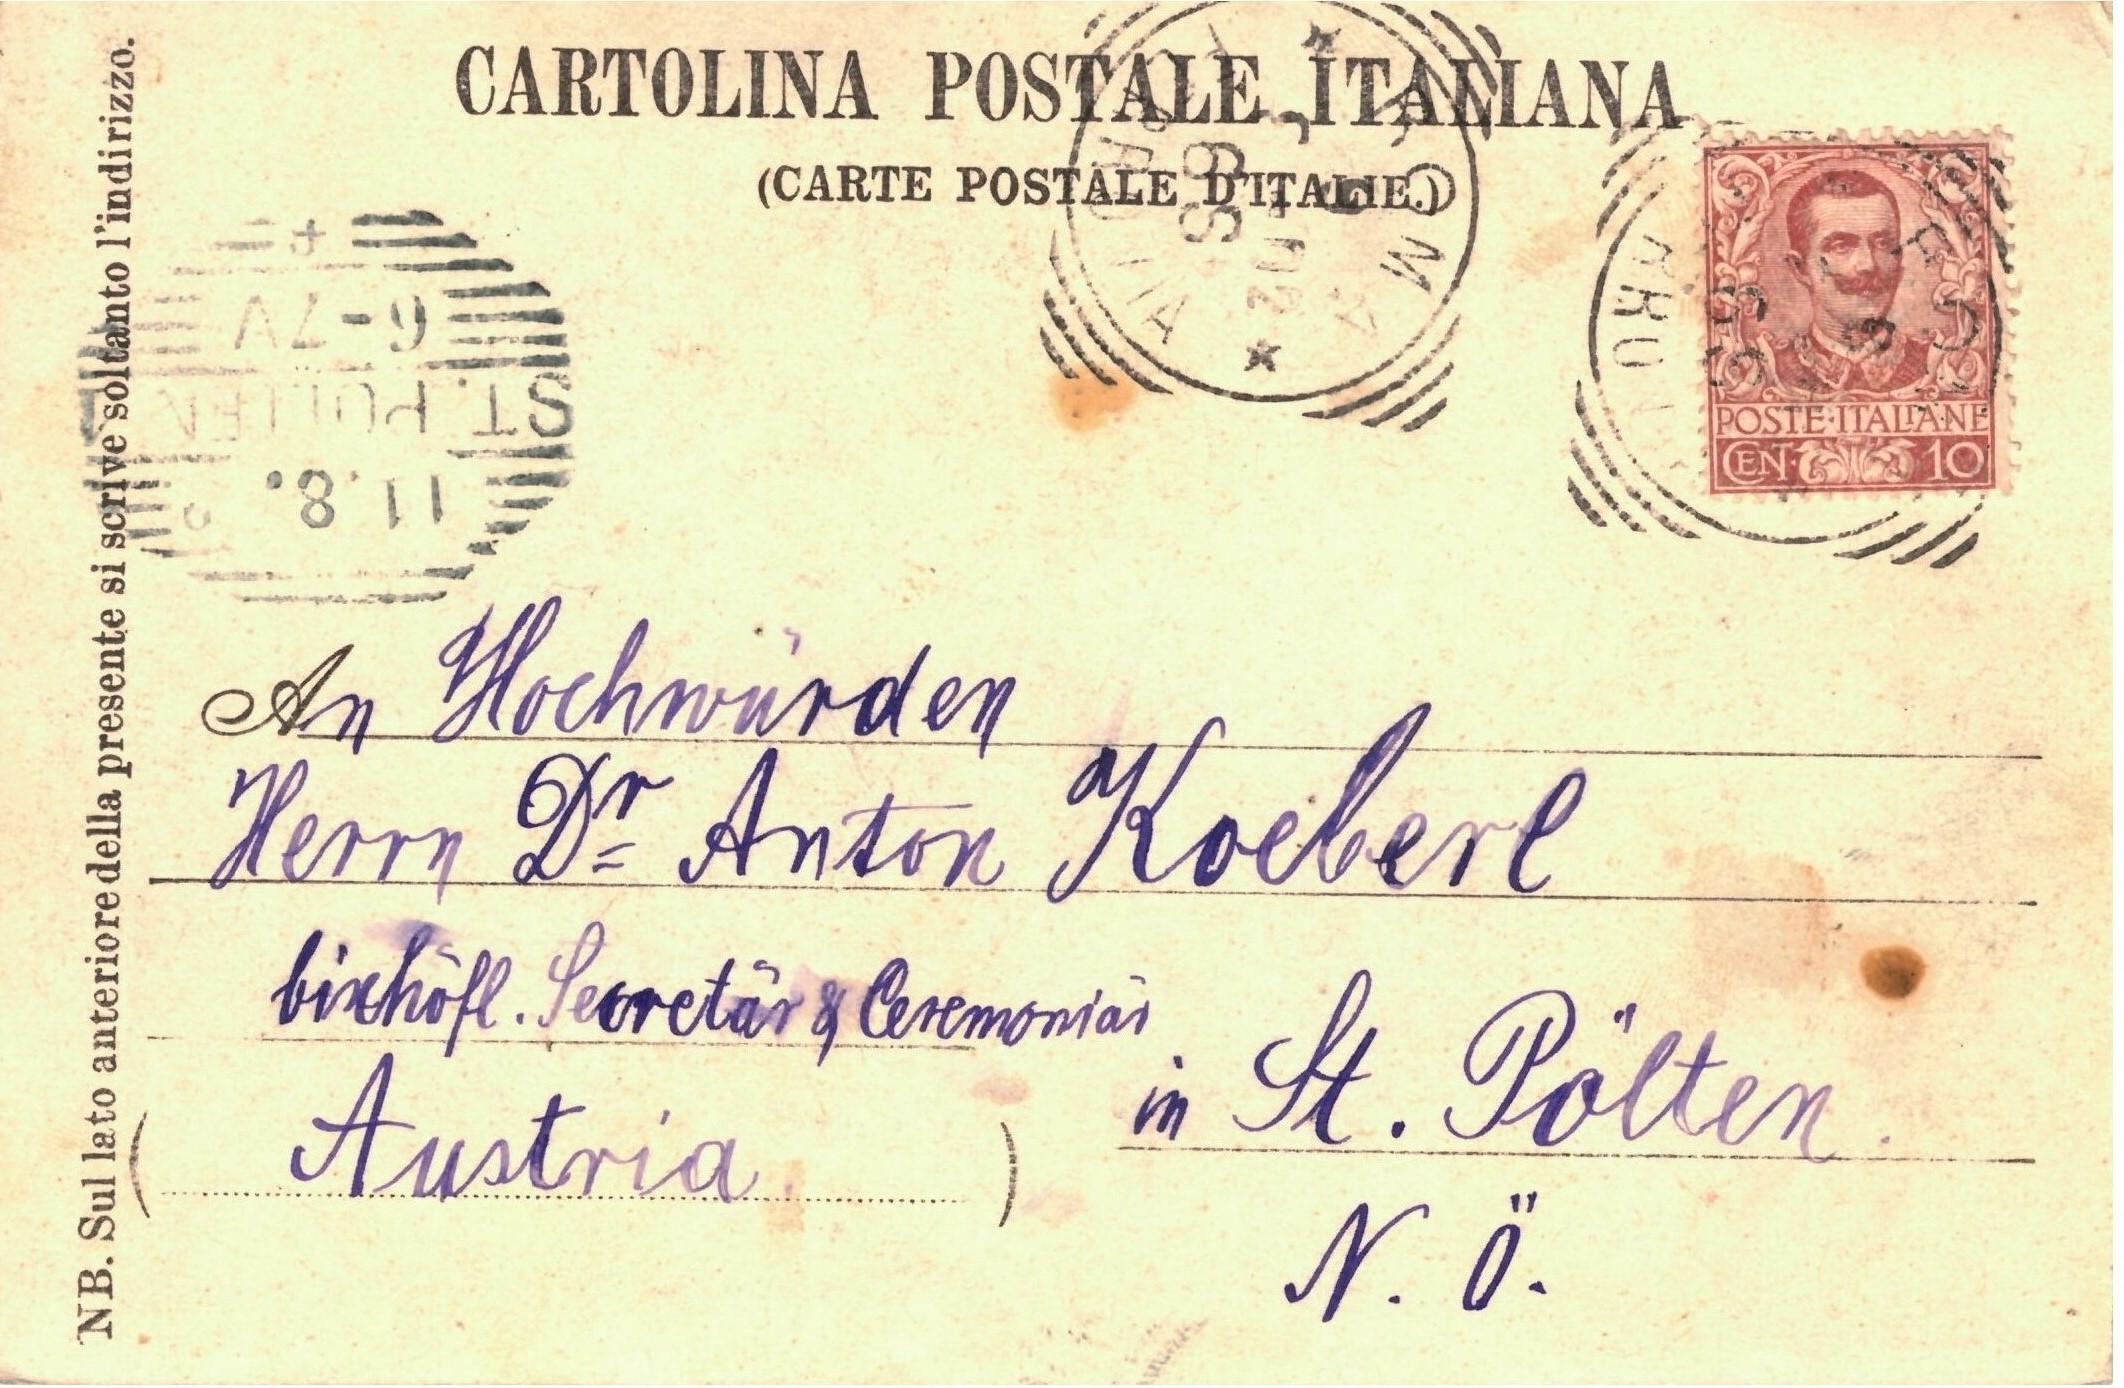 CARTOLINA POSTALE ITALIANA
(CARTE POSTALE D'ITALIE.)
NB. Sul lato anteriore della presente si scrive soltanto l'indirizzo.
POSTE·ITALIANE
CEN· 10
6-7V
ST. PÖLTEN
11.8.
ROMA
An Hochwürden
Herrn Dr Anton Koeberl
bischöfl. Secretär & Ceremoniär
in St. Pölten.
Austria
N. Ö.